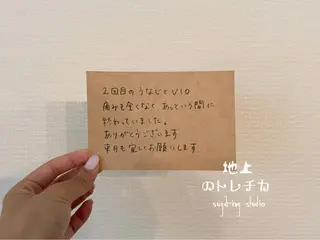 2回目のうなじとVIO
痛みも全くなく、あっという間に
終わっていました。
ありがとうございます
来月も宜しくお願いします
地上
のトレチカ
sugaring studio